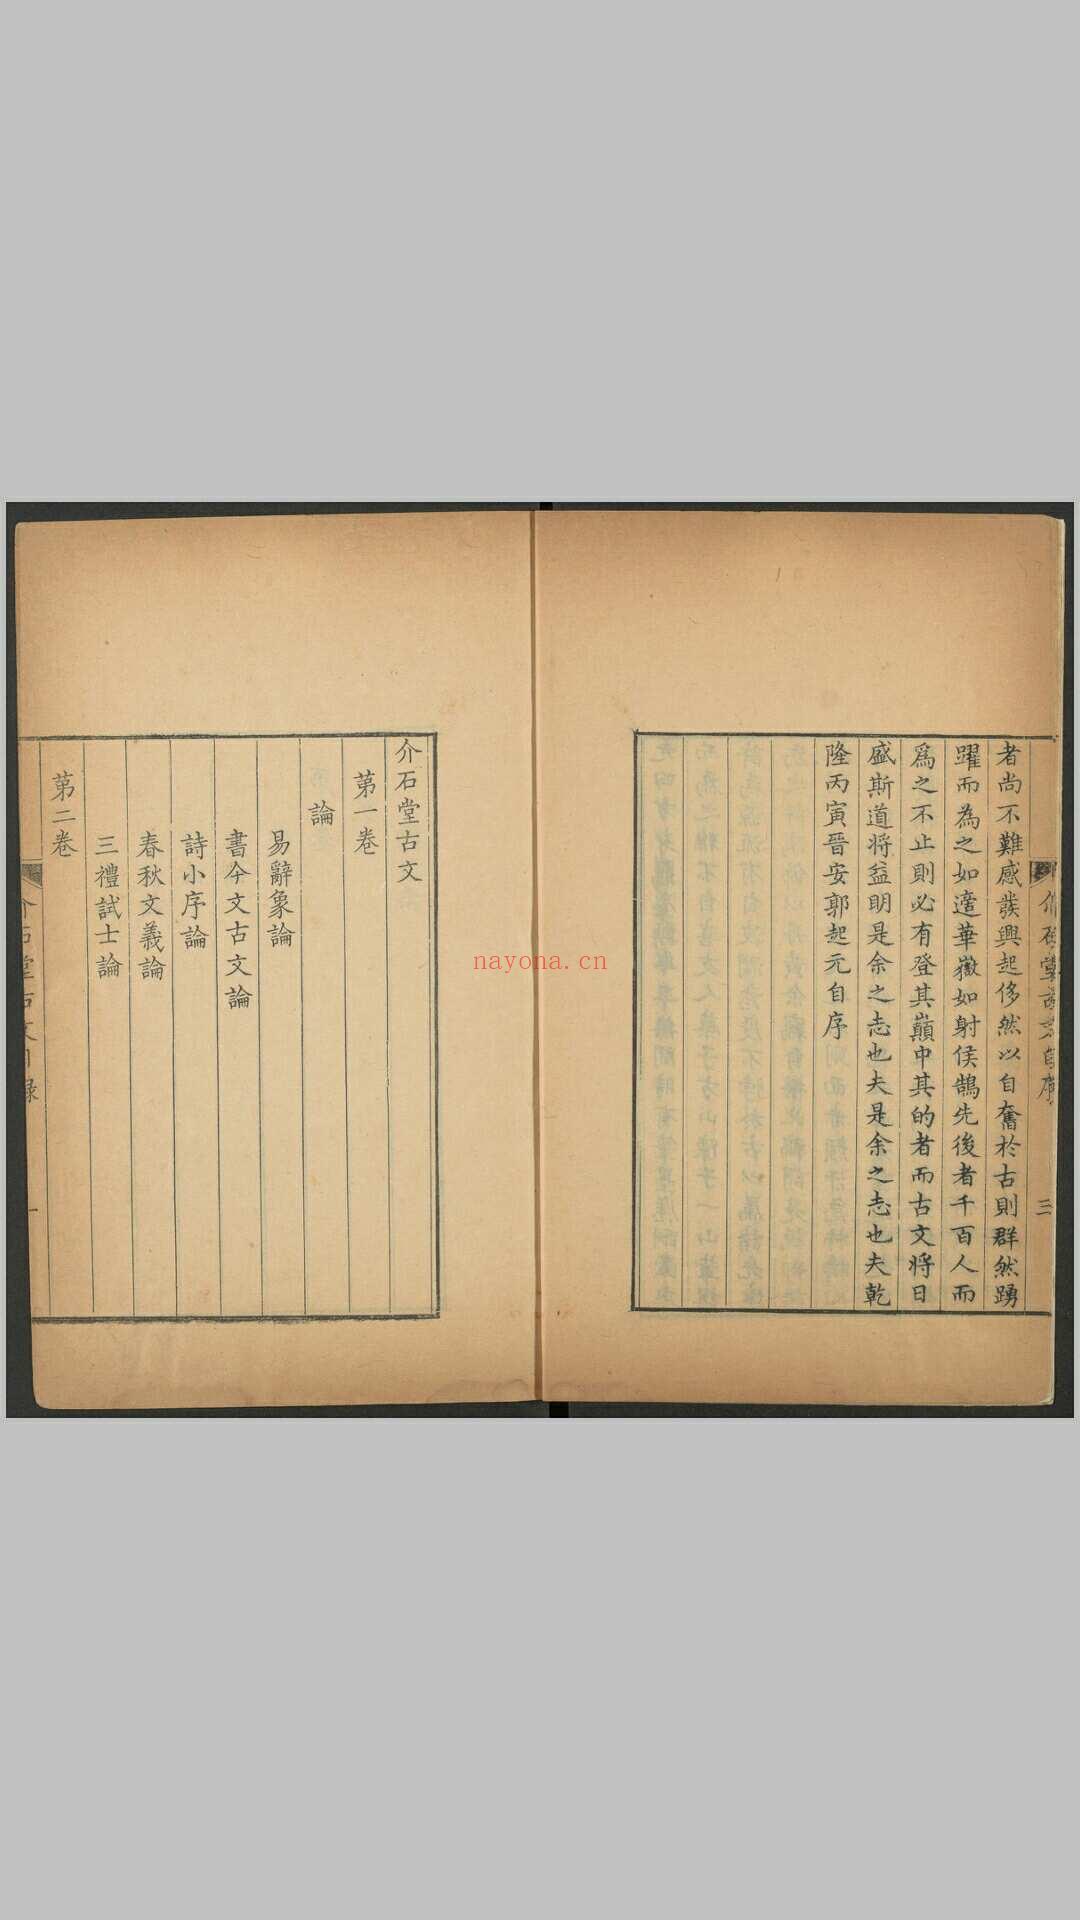 者尚不難感發興起侈然以自奮於古則群然踴
躍而為之如適華嶽如射侯鵠先後者千百人而
爲之不止則必有登其巔中其的者而古文將日
盛斯道將益明是余之志也夫是余之志也夫乾
隆丙寅晉安郭起元自序
三
介石堂古文
第一卷
論
易辭象論
書今文古文論
詩小序論
春秋文義論
三禮試士論
第二卷
介石堂古文目錄
一
nayona.cn